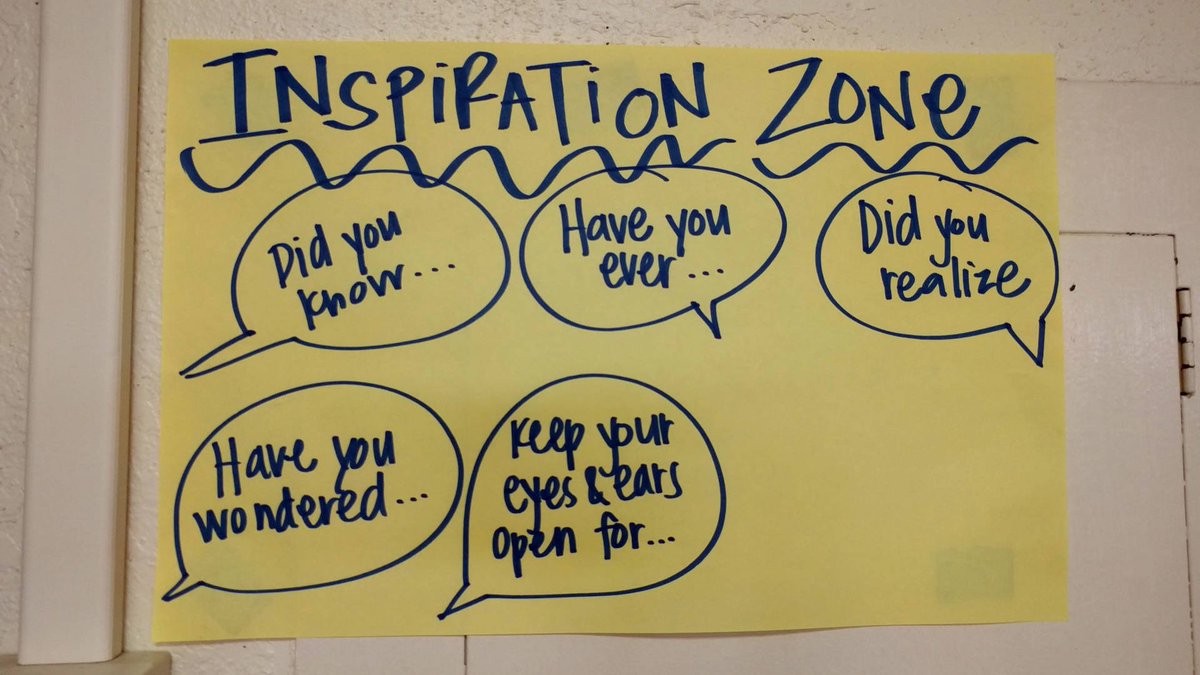 INSPIRATION ZONE
Did you
know...
Have you
ever...
Did you
realize
Have you
wondered...
Keep your
eyes & ears
open for...